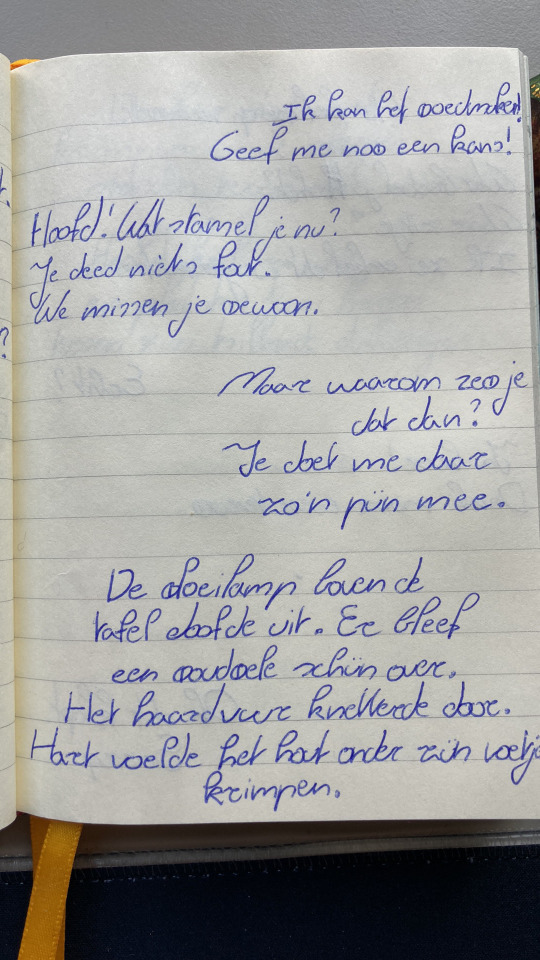 Ik kan het goedmaken!
Geef me nog een kans!
Hoofd! Wat stamel je nu?
Je deed niets fout.
We missen je gewoon.
Maar waarom zeg je
dat dan?
Je doet me daar
zo'n pijn mee.
De gloeilamp boven de
tafel doofde uit. Er bleef
een gouden schijn over.
Het haardvuur knetterde door.
Hart voelde het hout onder zijn voetje
krimpen.